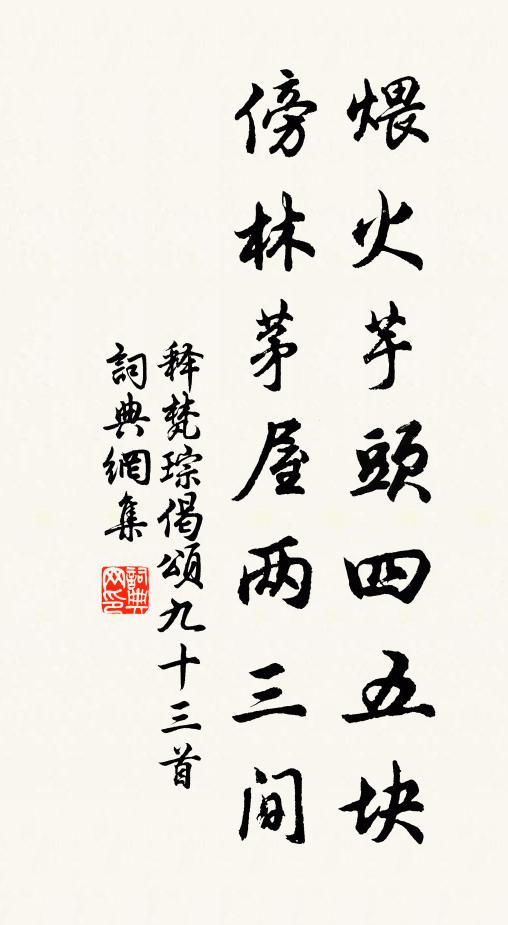 煨火芋頭四五块
傍林茅屋两三间
释梵琮偈頌九十三首
詞典網集
詞典网印